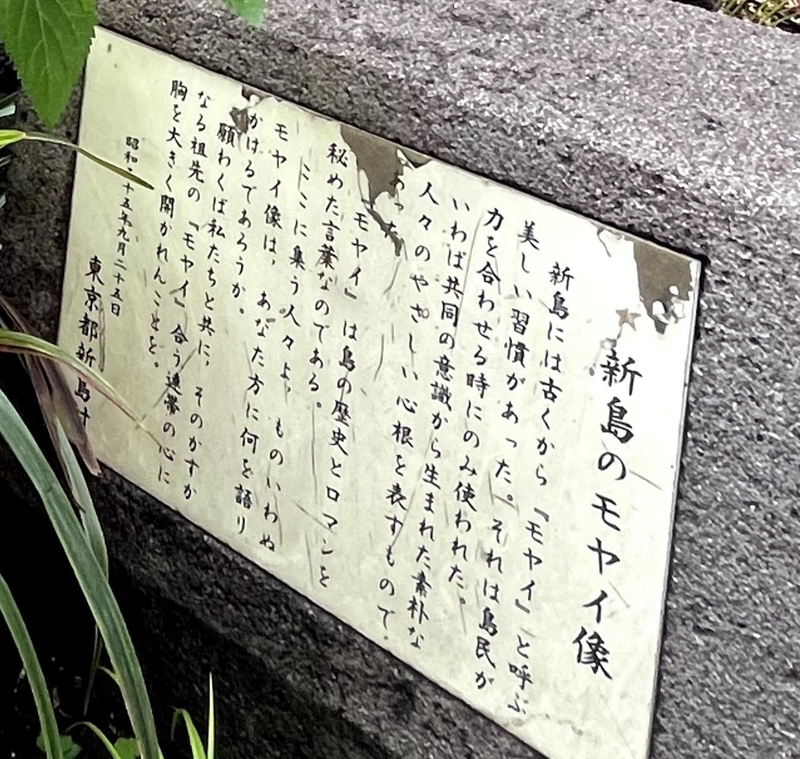 新島のモヤイ像
新島には古くから『モヤイ』と呼ぶ
美しい習慣があった。それは島民が
力を合わせる時にのみ使われた。
いわば共同の意識から生まれた素朴な
人々のやさしい心根を表すもので。
あった
モヤイ』は島の歴史とロマンを
秘めた言葉なのである。
ここに集う人々よ ものいわぬ
モヤイ像は、あなた方に何を語り
かけるであろうか。
願わくば私たちと共に、そのかすか
なる祖先の『モヤイ』合う連帯の心に
胸を大きく開かれんことを。
昭和 十五年九月二十五日
東京都新島